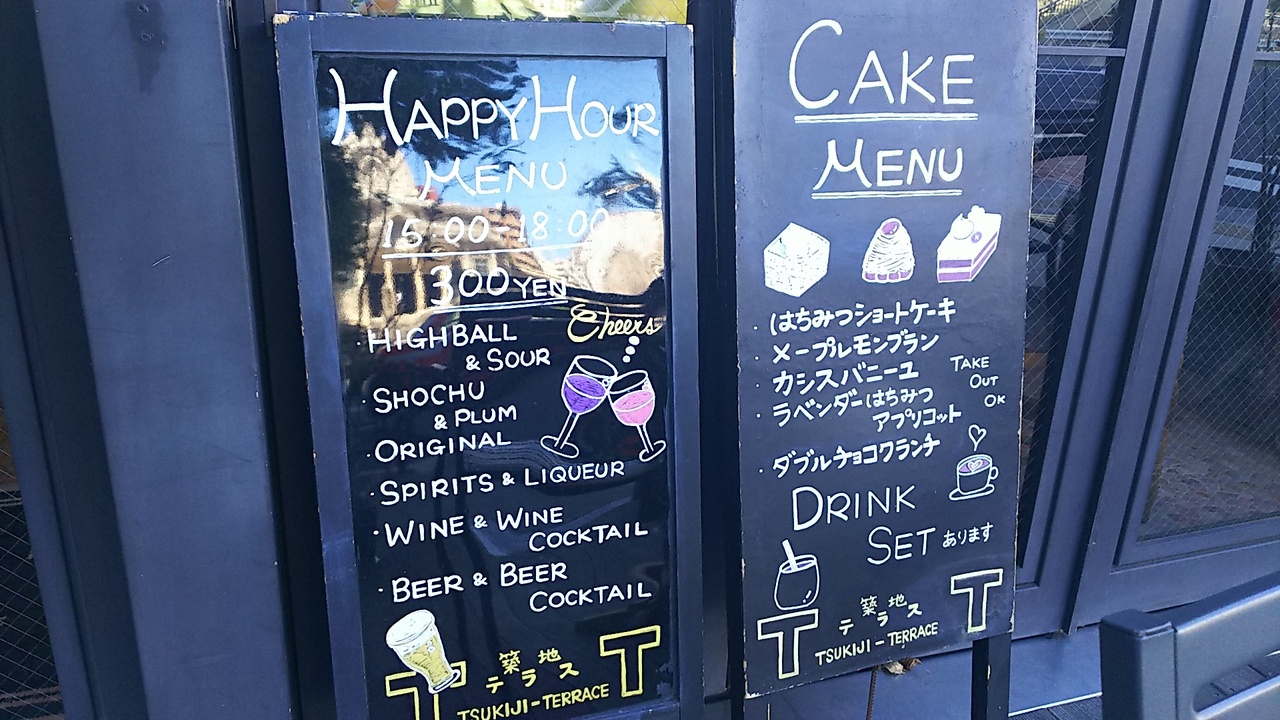 HAPPY HOUR
MENU
15:00-18:00
300 YEN
Cheers
・HIGHBALL
& SOUR
・SHOCHU
& PLUM
・ORIGINAL
・SPIRITS & LIQUEUR
・WINE & WINE
COCKTAIL
・BEER & BEER
COCKTAIL
T 築地 T
テラス
TSUKIJI-TERRACE
CAKE
MENU
・はちみつショートケーキ
・メープルモンブラン
・カシスバニーユ
・ラベンダーはちみつ
アプリコット
・ダブルチョコクランチ
TAKE
OUT
OK
DRINK
SET あります
T 築地 T
テラス
TSUKIJI-TERRACE